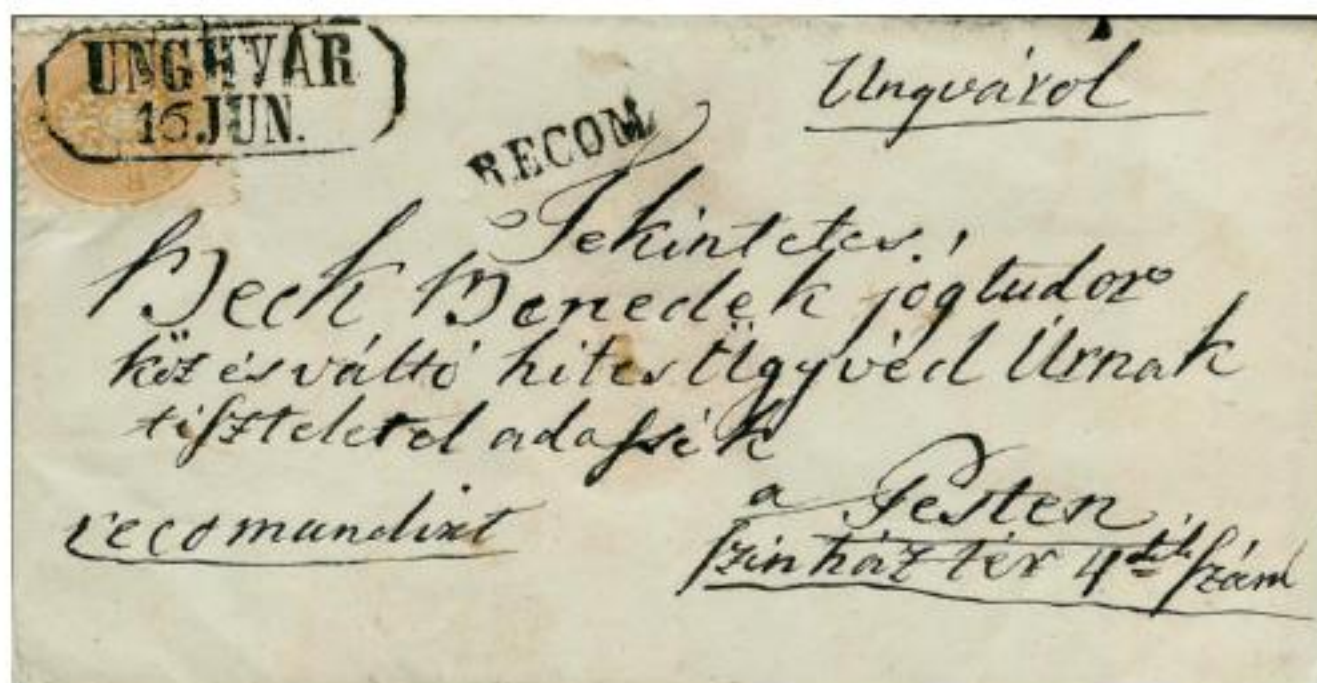 UNGHVÁR
16 JUN.
RECOM
Ungvárol
Tekintetes!
Beck Benedek jogtudor
köz és váltó hites Ügyvéd Úrnak
tisztelettel adassék
a Pesten
recomandirt
szinház tér 4dik szám